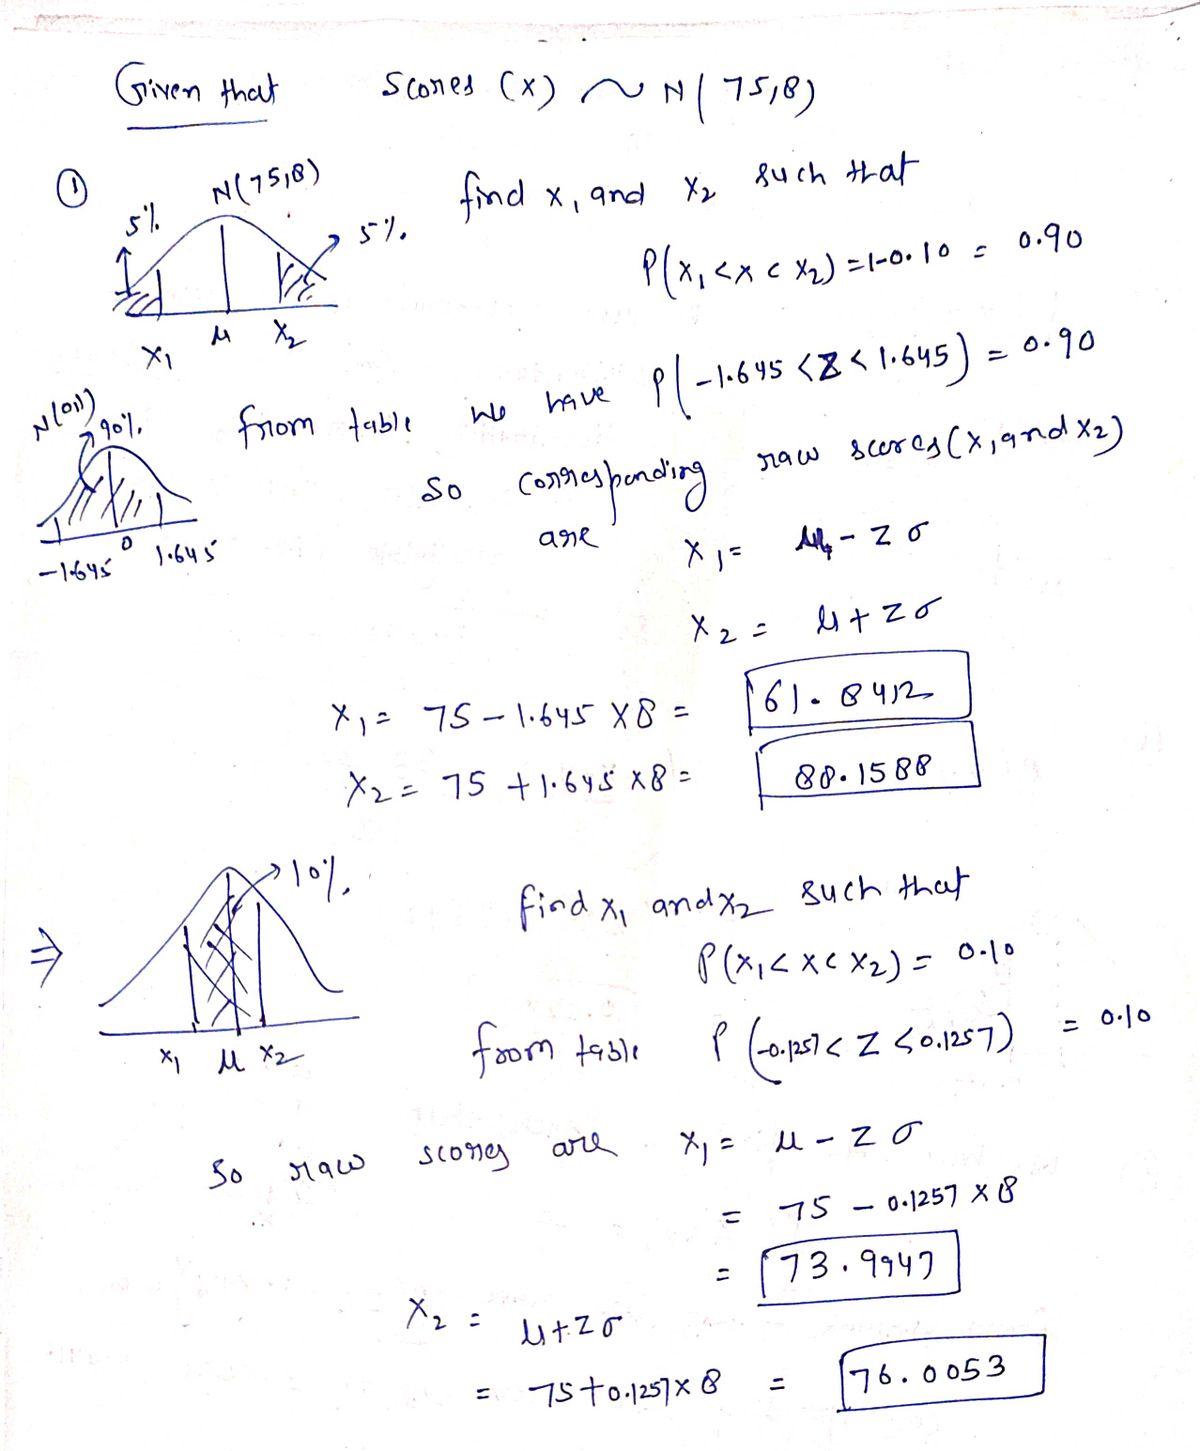 Given that scores (x) ~ N( 75,8)
① N(75,8) find x1 and x2 such that
5% 5%.
P(x1 < x < x2) = 1-0.10 = 0.90
x1 μ x2
N(0,1) 90%. from table we have P(-1.645 < Z < 1.645) = 0.90
-1.645 0 1.645
so corresponding raw scores (x1 and x2)
are x1 = μ - Zσ
x2 = μ + Zσ
x1 = 75 - 1.645 × 8 = 61.8412
x2 = 75 + 1.645 × 8 = 88.1588
⇒ 10%. find x1 and x2 such that
P(x1 < x < x2) = 0.10
x1 μ x2 from table P (-0.1257 < Z < 0.1257) = 0.10
so raw scores are x1 = μ - Zσ
= 75 - 0.1257 × 8
= 73.9947
x2 = μ + Zσ
= 75 + 0.1257 × 8 = 76.0053